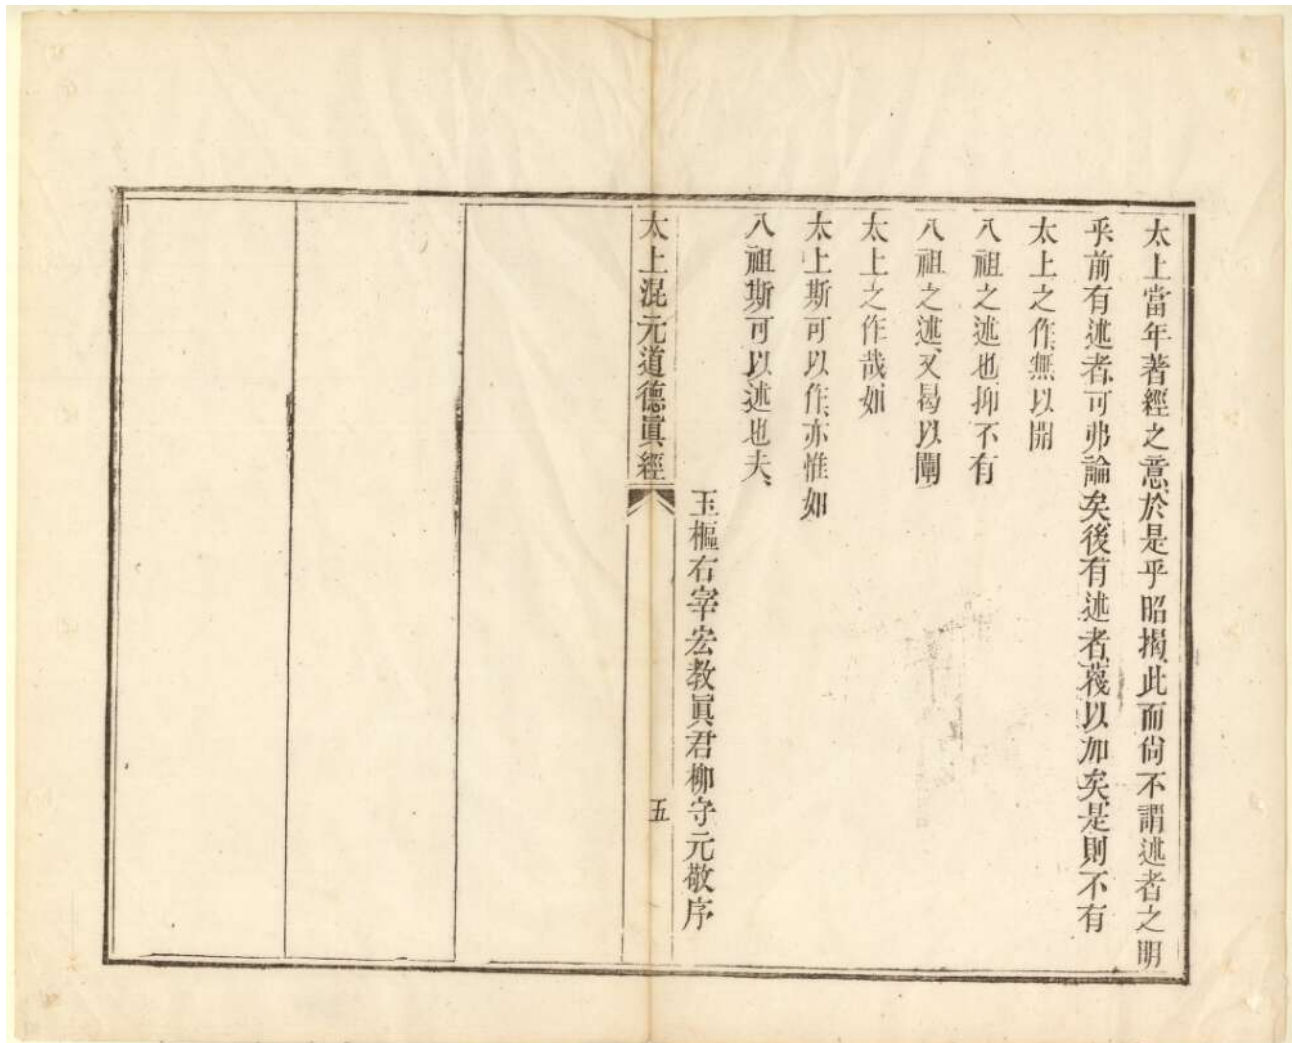 太上當年著經之意、於是乎昭揭、此而尙不謂述者之明
乎、前有述者、可弗論矣、後有述者、蔑以加矣、是則不有
太上之作、無以開
八祖之述也、抑不有
八祖之述、又曷以闡
太上之作哉、如
太上斯可以作、亦惟如
八祖斯可以述也夫、
玉樞右宰宏教眞君柳守元敬序
太上混元道德眞經
五